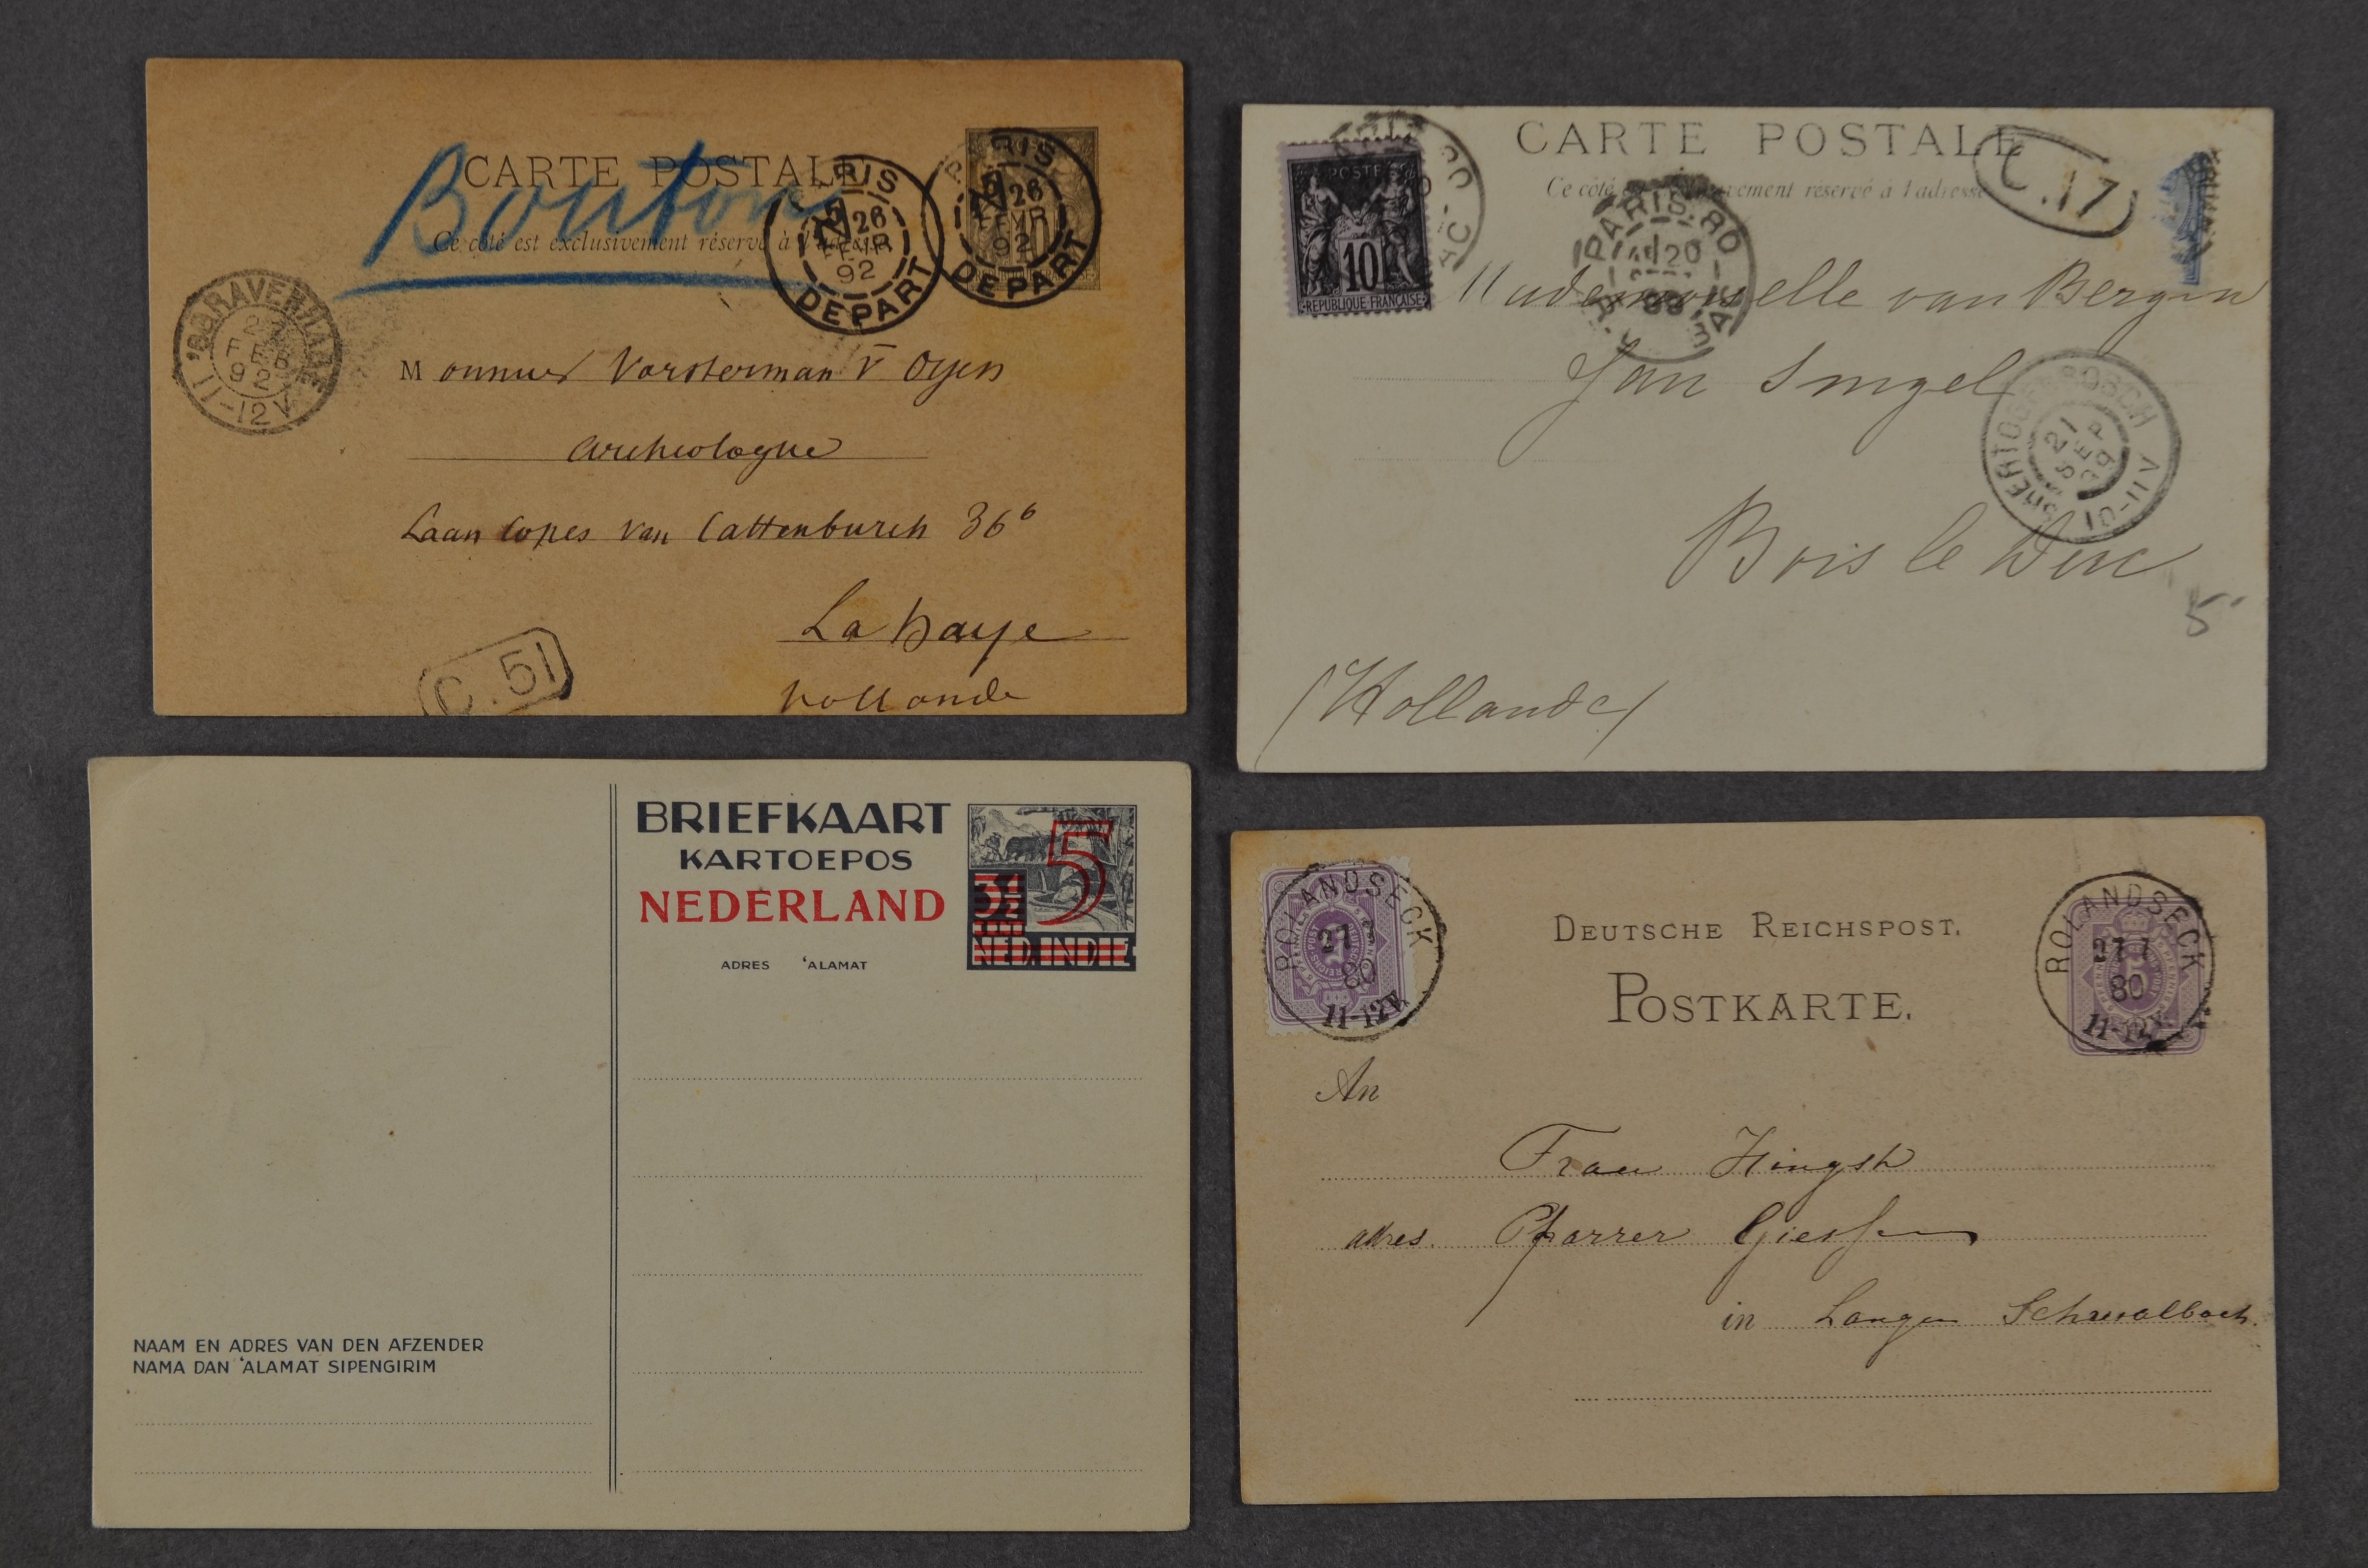 CARTE POSTALE
Bouton
Ce côté est exclusivement réservé à l'adresse
PARIS
26
FEVR
92
DEPART
PARIS
26
FEVR
92
DEPART
'SGRAVENHAGE
27
FEB
92
11-12V
Vorsterman V Oyen
archeologue
Laan Copes van Cattenburch 36
La Haye
Hollande
C. 51
CARTE POSTALE
Ce côté est exclusivement réservé à l'adresse
C. 17
POSTES
10
REPUBLIQUE FRANÇAISE
PARIS. 80
20
Mademoiselle van Bergen
Jan Singel
'SHERTOGENBOSCH
21
SEP
99
10-11V
Bois le Duc
5
(Hollande)
BRIEFKAART
KARTOEPOS
NEDERLAND
ADRES 'ALAMAT
5
3½
CENT
NED. INDIE
NAAM EN ADRES VAN DEN AFZENDER
NAMA DAN 'ALAMAT SIPENGIRIM
ROLANDSECK
27 7
80
11-12V
DEUTSCHE REICHSPOST.
POSTKARTE.
ROLANDSECK
27 7
80
11-12V
5
An
Frau Hingst
adres. Pfarrer Giessen
in Langen Schwalbach.